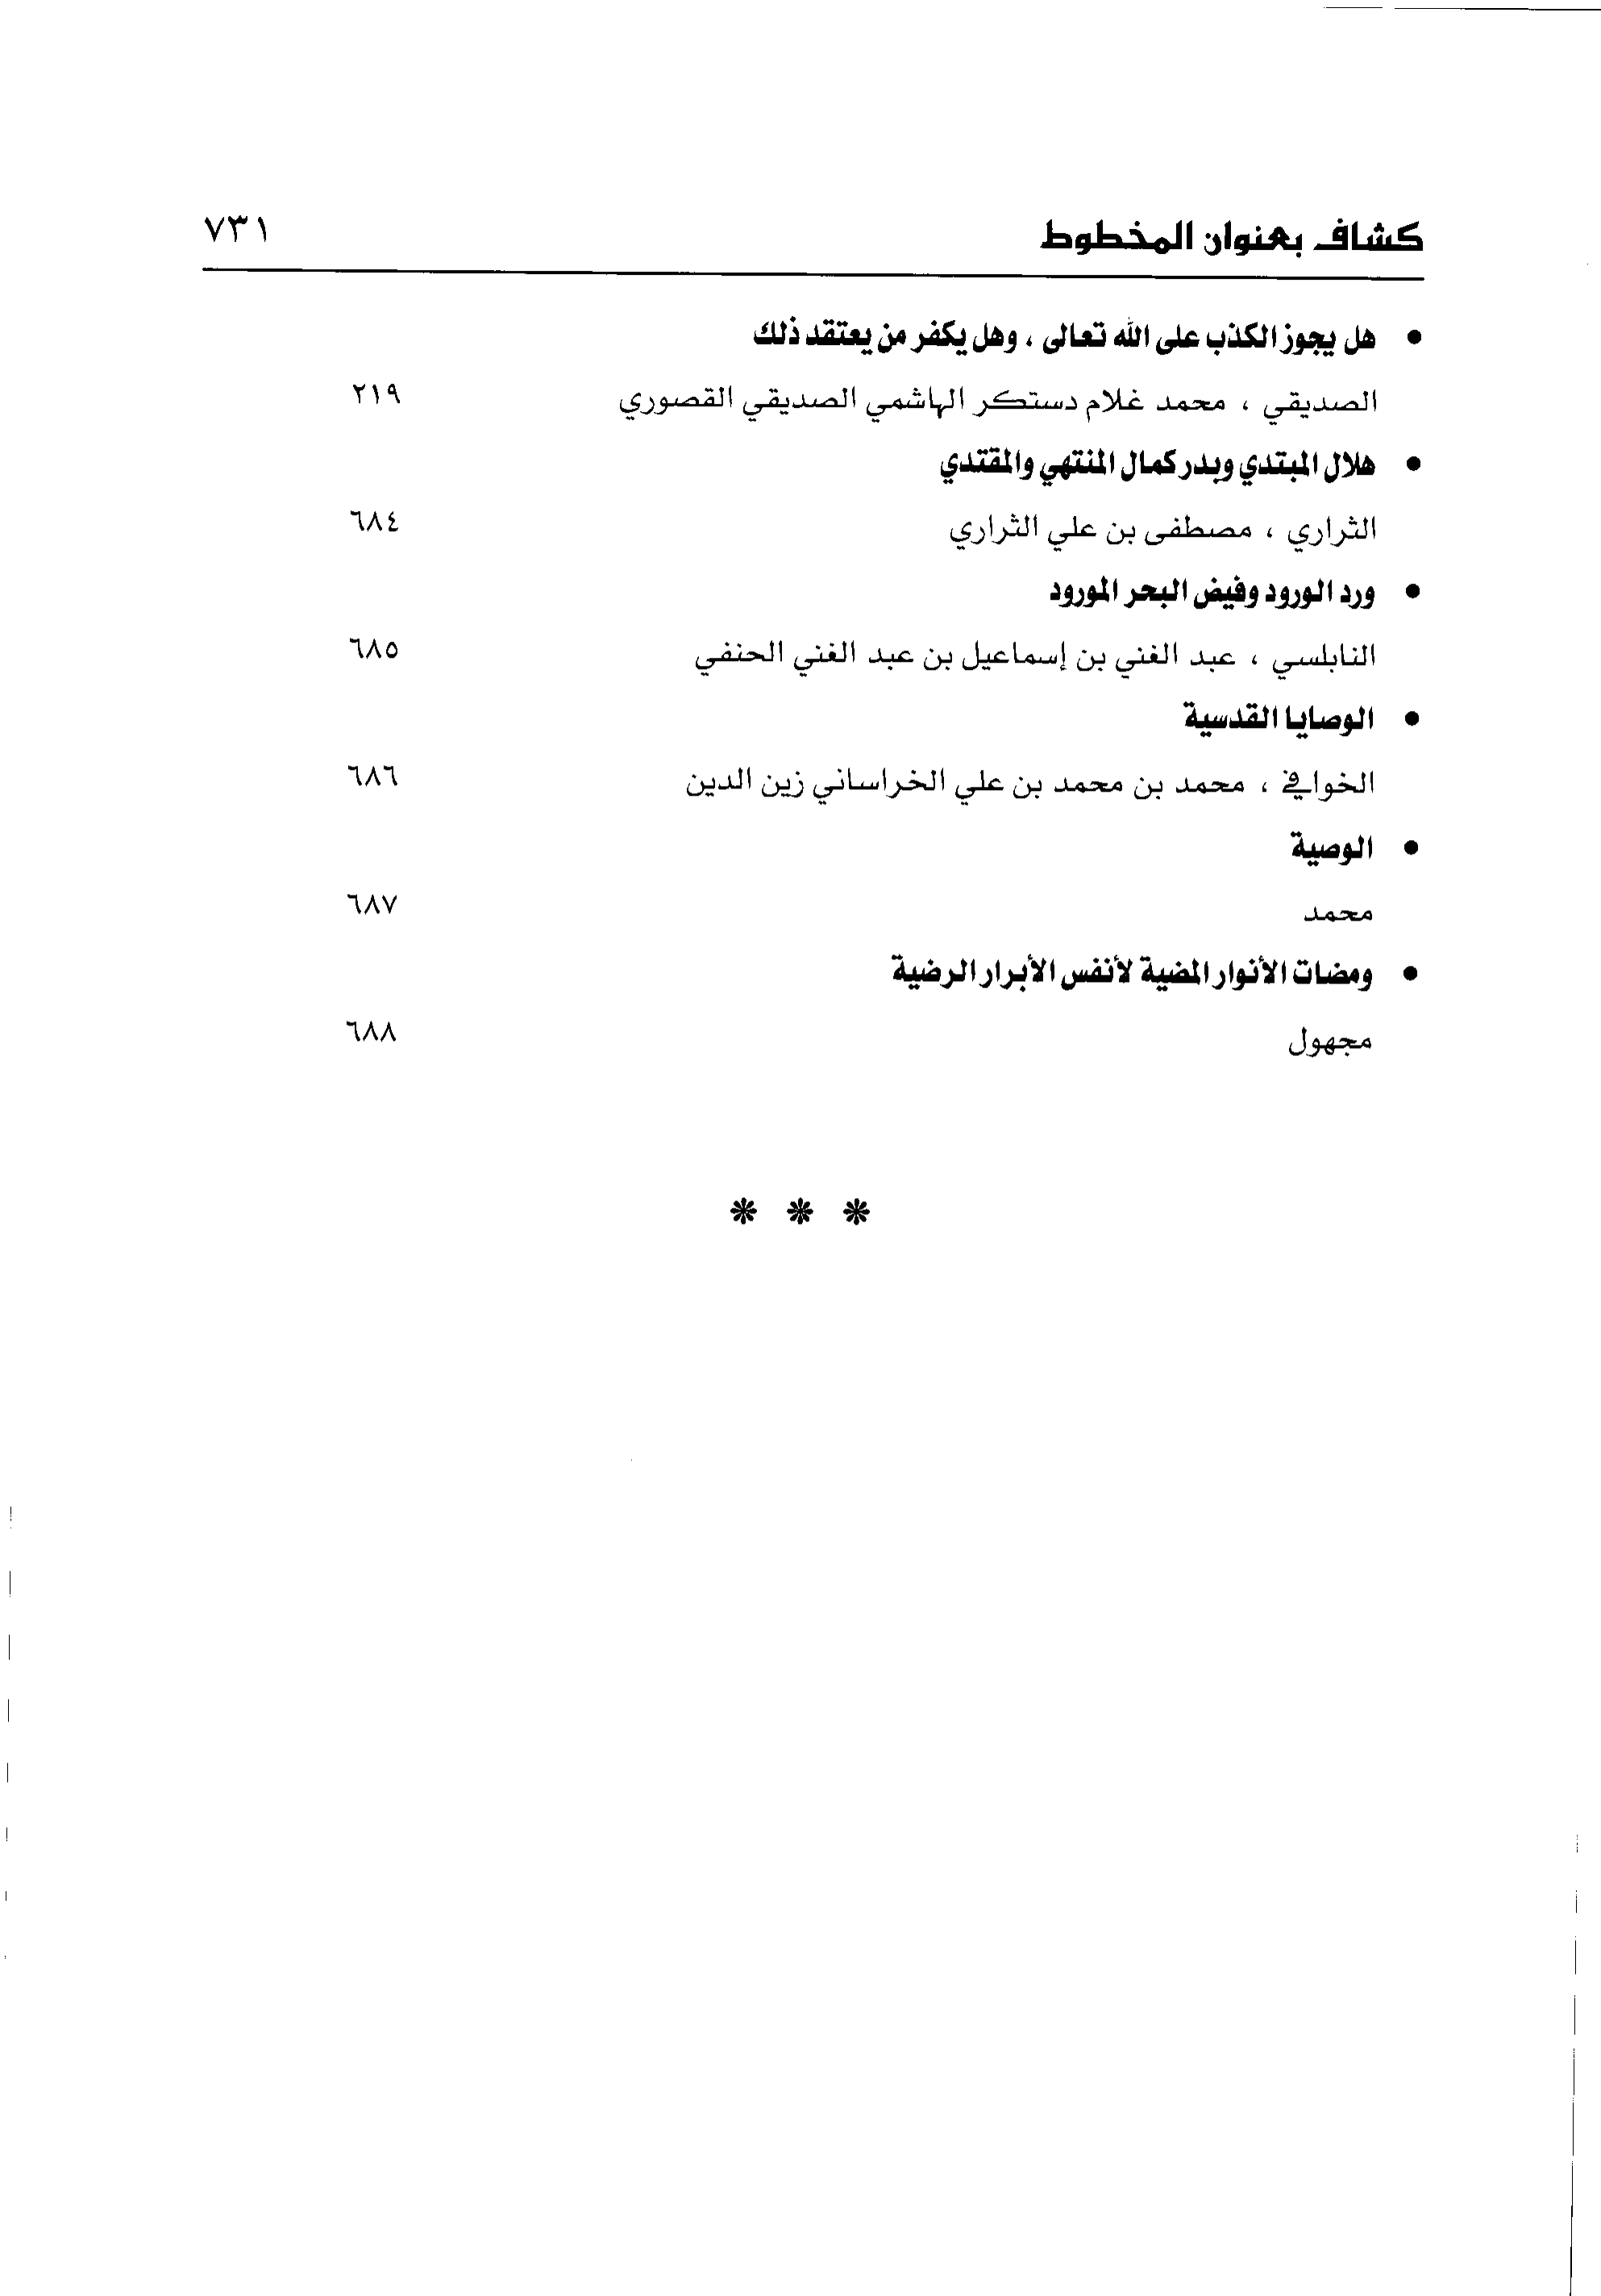 كشاف بعنوان المخطوط ٧٣١
• هل يجوز الكذب على الله تعالى ، وهل يكفر من يعتقد ذلك
الصديقي ، محمد غلام دستكر الهاشمي الصديقي القصوري ٢١٩
• هلال المبتدي وبدر كمال المنتهي والمقتدي
الثراري ، مصطفى بن علي الثراري ٦٨٤
• ورد الورود وفيض البحر المورود
النابلسي ، عبد الغني بن إسماعيل بن عبد الغني الحنفي ٦٨٥
• الوصايا القدسية
الخوافي ، محمد بن محمد بن علي الخراساني زين الدين ٦٨٦
• الوصية
محمد ٦٨٧
• ومضات الأنوار المضية لأنفس الأبرار الرضية
مجهول ٦٨٨
* * *